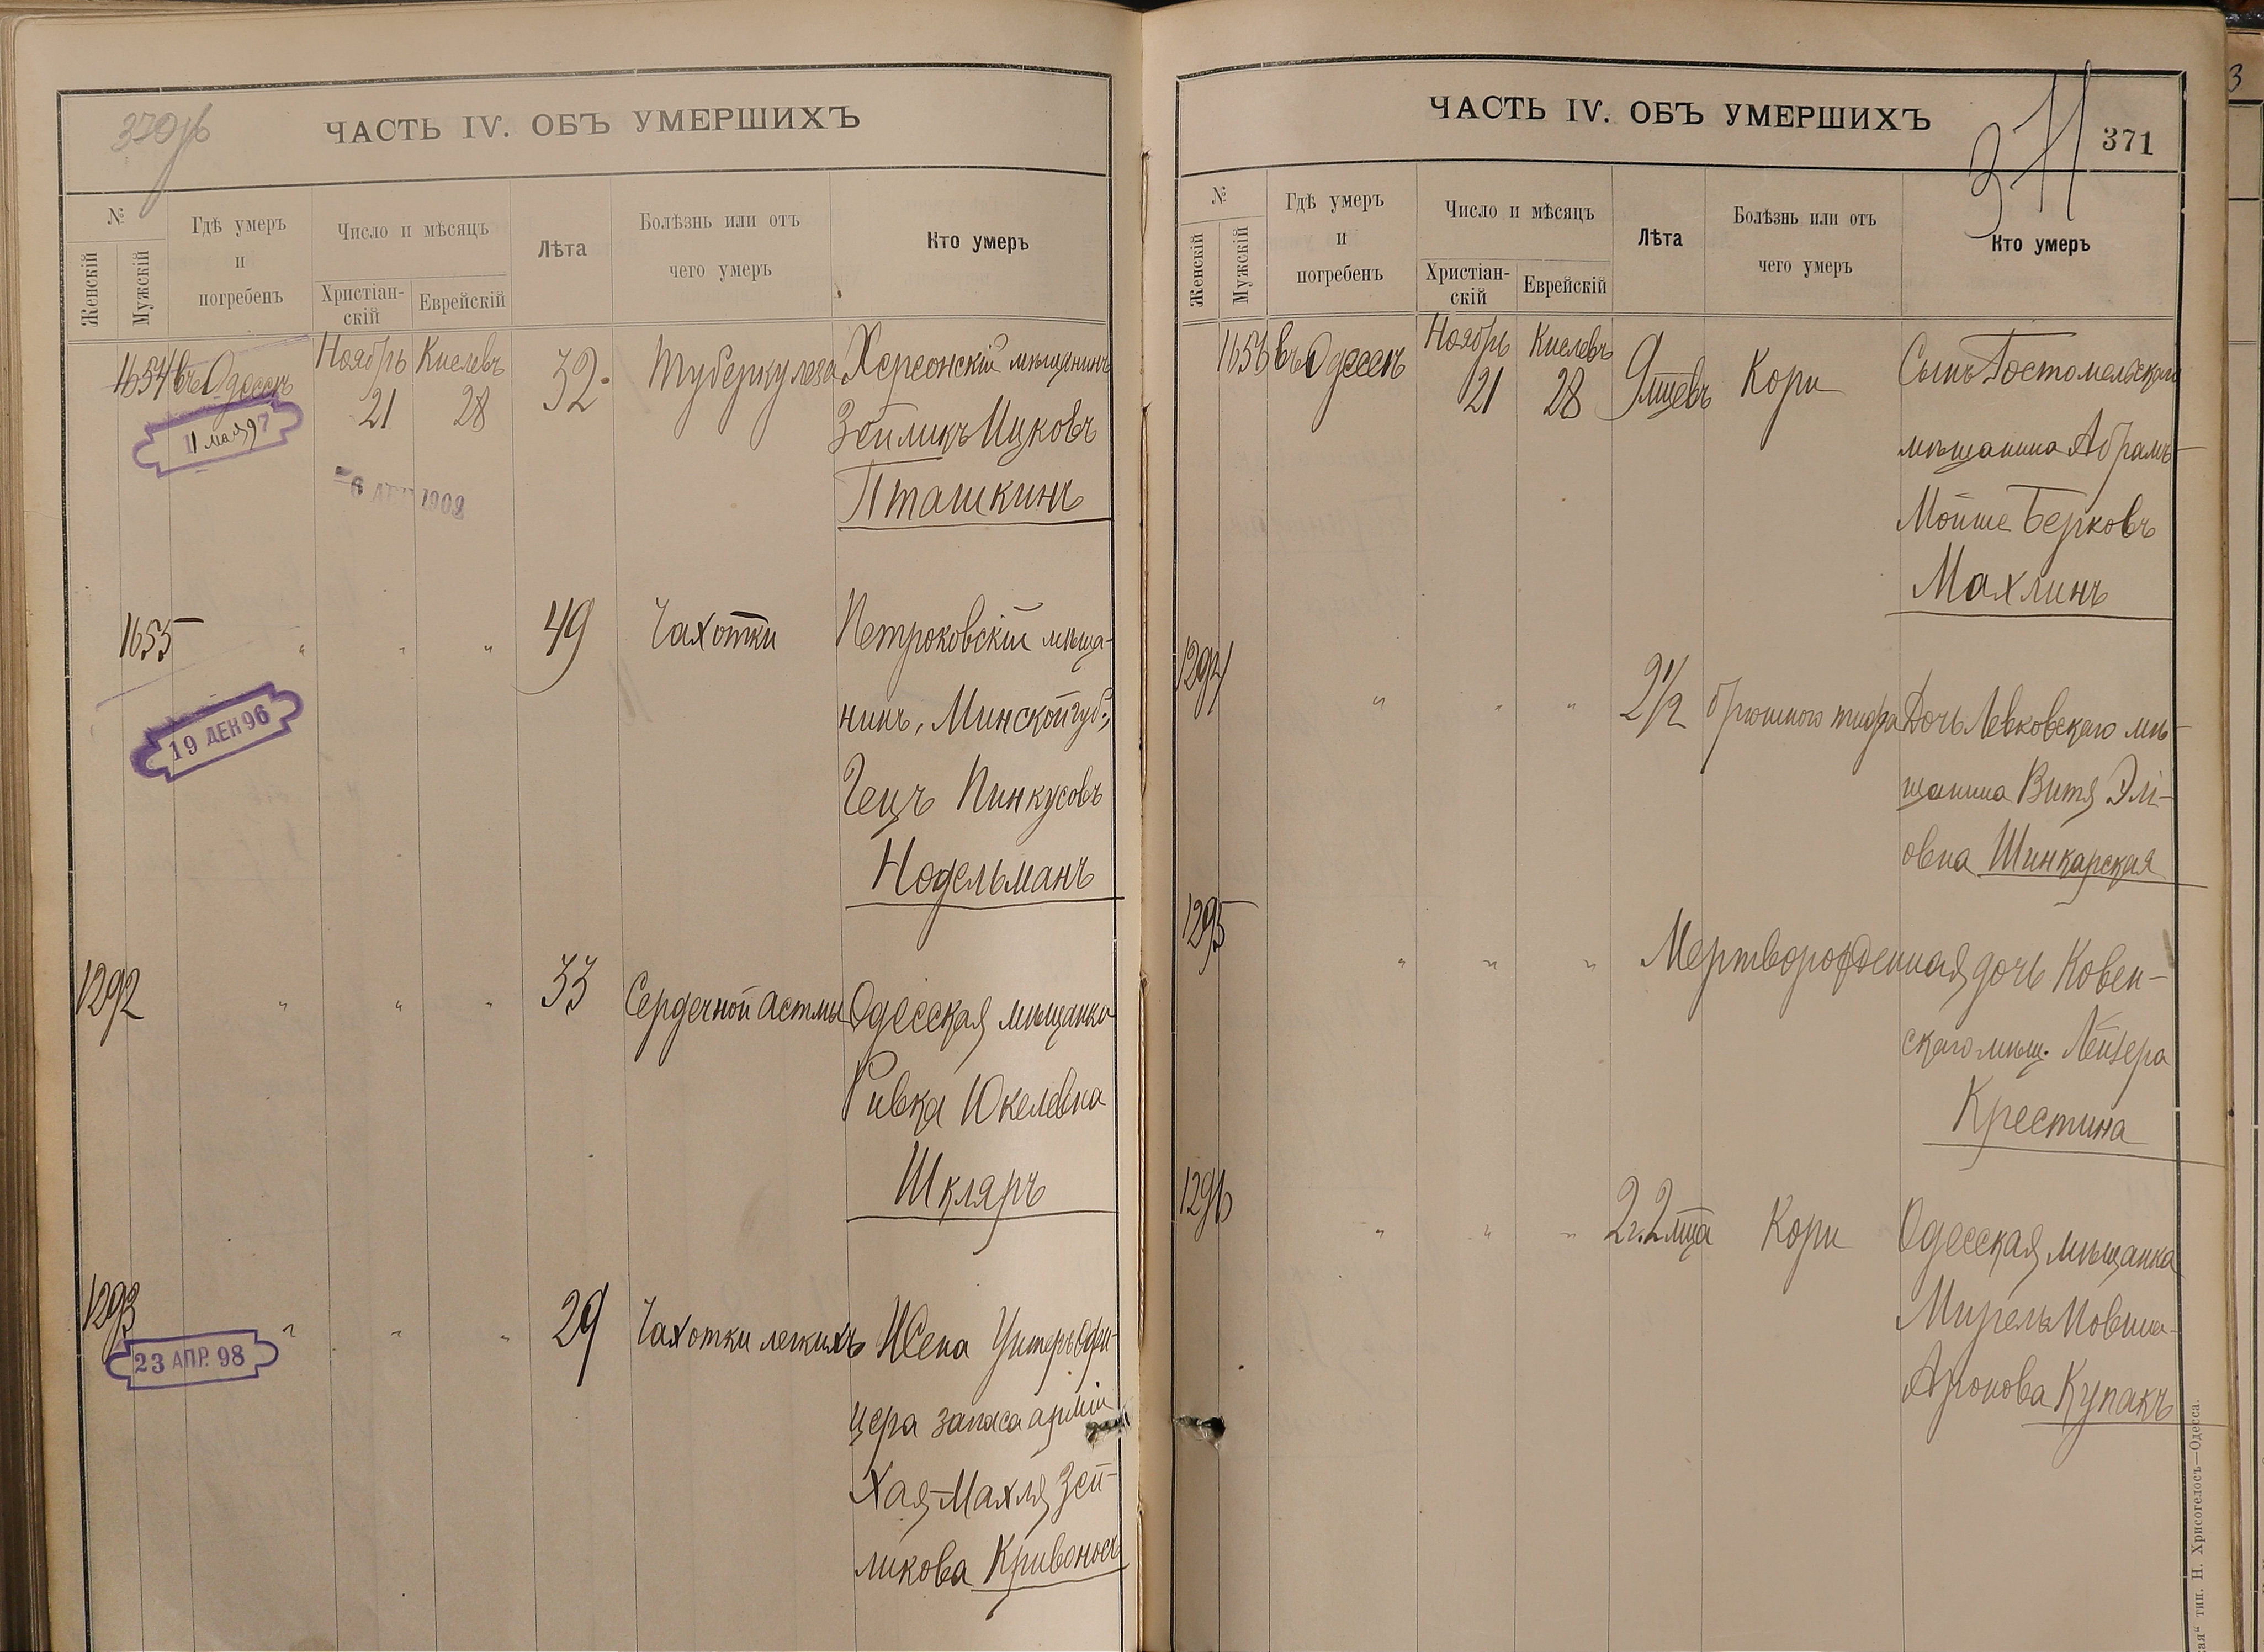 370об
ЧАСТЬ IV. ОБЪ УМЕРШИХЪ
№
Женскій
Мужскій
Гдѣ умеръ
и
погребенъ
Число и мѣсяцъ
Христіан-
скій
Еврейскій
Лѣта
Болѣзнь или отъ
чего умеръ
Кто умеръ
1654 въ Одессѣ Ноябрь 21 Кислевъ 28 32. Туберкулеза Херсонскій мѣщанинъ
Зейликъ Ицковъ
Пташкинъ
11 мая 97
6 1902
1655 " " " 49 Чахотки Петроковскій мѣща-
нинъ, Минской губ.,
Гецъ Пинкусовъ
Нодельманъ
19 ДЕК 96
1292 " " " 33 Сердечной астмы Одесская мѣщанка
Ривка Юкелевна
Шкляръ
1293 " " " 29 Чахотки легкихъ Жена Унтеръ офи-
цера запаса арміи
Хая-Махля Зей-
ликова Кривоносъ
23 АПР. 98
ЧАСТЬ IV. ОБЪ УМЕРШИХЪ
371
371
№
Женскій
Мужскій
Гдѣ умеръ
и
погребенъ
Число и мѣсяцъ
Христіан-
скій
Еврейскій
Лѣта
Болѣзнь или отъ
чего умеръ
Кто умеръ
1656 въ Одессѣ Ноябрь 21 Кислевъ 28 9 мцевъ Кори Сынъ Гостомельскаго
мѣщанина Абрамъ-
Мойше Берковъ
Махлинъ
1294 " " " 2 1/2 брюшного тифа Дочь Левковскаго мѣ-
щанина Витя Элі-
овна Шинкарская
1295 " " " Мертворожденная дочь Ковен-
скаго мѣщ. Лейзера
Крестина
1296 " " " 2 г. 2 мца Кори Одесская мѣщанка
Мирель Мовша-
Аронова Купакъ
тип. Н. Хрисогелосъ—Одесса.
3